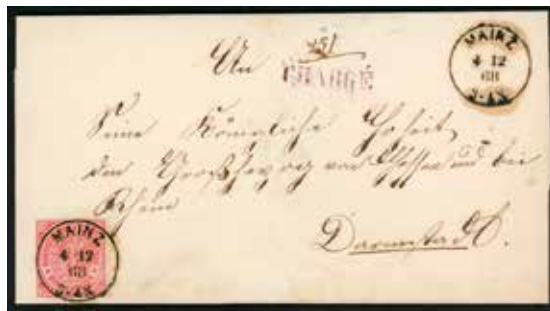 An
CHARGÉ
MAINZ
4 12
68
Seine Königliche Hoheit
den Großherzog von Hessen und bei
Rhein
Darmstadt.
MAINZ
4 12
68